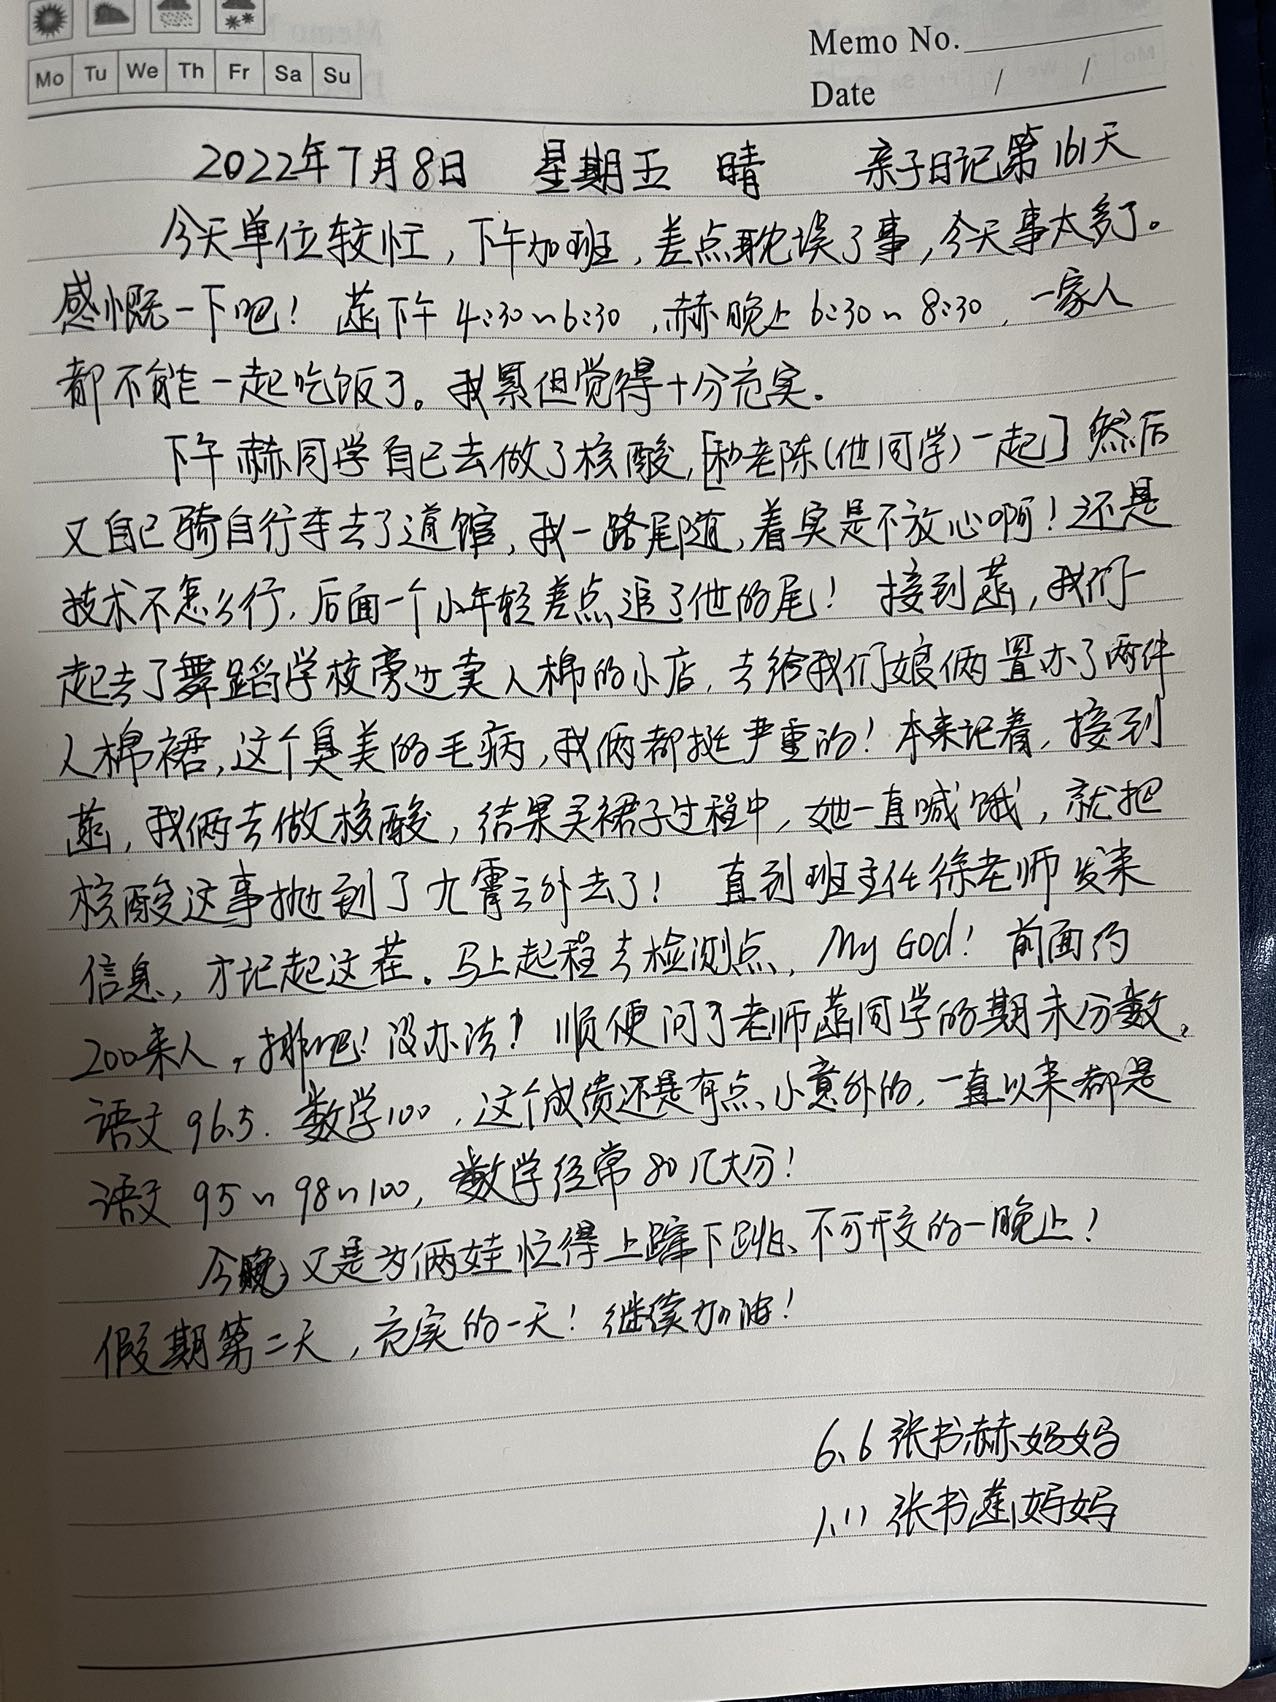 Mo Tu We Th Fr Sa Su
Memo No.
Date / /
2022年7月8日 星期五 晴 亲子日记第161天
今天单位较忙，下午加班，差点耽误了事，今天事太多了。
感慨一下吧！菡下午4:30~6:30，赫晚上6:30~8:30，一家人
都不能一起吃饭了。我累但觉得十分充实。
下午赫同学自己去做了核酸，[和老陈(他同学)一起]然后
又自己骑自行车去了道馆，我一路尾随，着实是不放心啊！还是
技术不怎么行，后面一个小年轻差点追了他的尾！接到菡，我们一
起去了舞蹈学校旁边卖人棉的小店，去给我们娘俩置办了两件
人棉裙，这个臭美的毛病，我俩都挺严重的！本来记着，接到
菡，我俩去做核酸，结果买裙子过程中，她一直喊‘饿’，就把
核酸这事抛到了九霄云外去了！直到班主任徐老师发来
信息，才记起这茬。马上起程去检测点，My God！前面约
200来人，排吧！没办法！顺便问了老师菡同学的期末分数，
语文96.5.数学100，这个成绩还是有点小意外的，一直以来都是
语文95~98~100，数学经常80几大分！
今晚又是为俩娃忙得上蹿下跳、不可开交的一晚上！
假期第二天，充实的一天！继续加油！
6.6张书赫妈妈
1.11张书菡妈妈